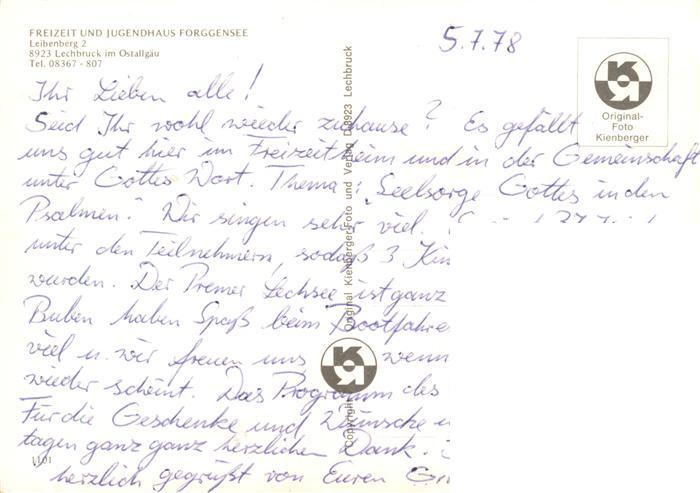 FREIZEIT UND JUGENDHAUS FORGGENSEE
Leibenberg 2
8923 Lechbruck im Ostallgäu
Tel. 08367 - 807
5.7.78
Original-
Foto
Kienberger
Ihr Lieben alle!
Seid Ihr wohl wieder zuhause? Es gefällt
uns gut hier im Freizeitheim und in der Gemeinschaft
unter Gottes Wort. Thema: "Seelsorge Gottes in den
Psalmen." Wir singen sehr viel.
unter den Teilnehmern, sodaß 3 Kin
wurden. Der Premer Lechsee ist ganz
Buben haben Spaß beim Bootfahre
viel u. wir freuen uns wenn
wieder scheint. Das Programm des
Für die Geschenke und Wünsche u
tagen ganz ganz herzlichen Dank.
herzlich gegrüßt von Euren
1101
Copyright Original Kienberger-Foto und Verlag D-8923 Lechbruck